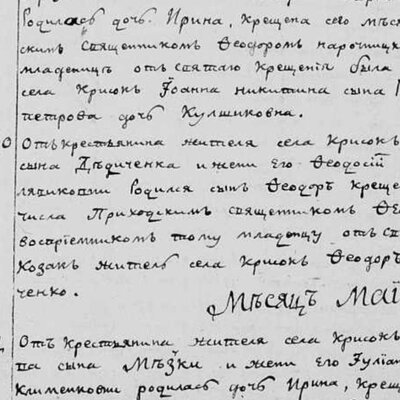 родилась дочь. Ирина, Крещена сего мѣся
скимъ священникомъ Ѳеодоромъ нарочниц
младенцъ отъ святаго Крещенія была
села Крисокъ Іоанна никитина сына
петрова дочь Кулшиковна.
О Отъ крестьянина жителя села Крисокъ
сына Дѣдиченка и жени его Ѳеодосіи
ляшковны родился сынъ Ѳеодоръ Креще
числа Приходскимъ священникомъ Ѳе
воспріемникомъ тому младенцу отъ св
Козакъ житель села Крисокъ Ѳеодоръ
ченко.
Мѣсяцъ Маі
Отъ крестьянина жителя села Крисокъ
па сына Мѣзки и жени его Іуліан
Клименковни родилась дочь Ирина, Крещ